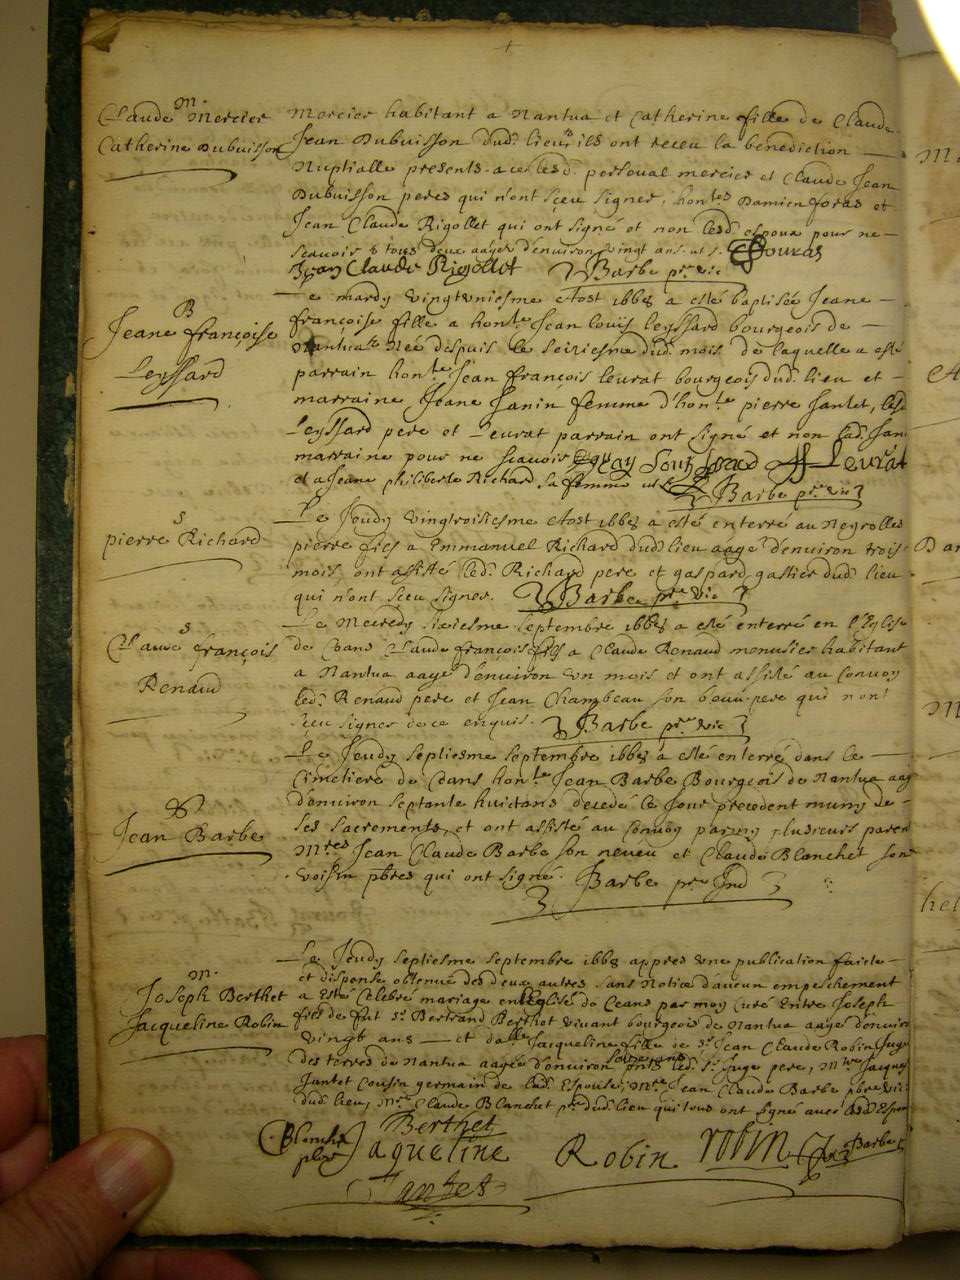 M.
Claude Mercier
Catherine Dubuisson
Mercier habitant a Nantua et Catherine fille de Claude
Jean Dubuisson dud. lieu, ils ont receu la benediction
Nuptialle presents a ce lesd. personal mercier et Claude Jean
Dubuisson peres qui n'ont sçeu signer, hontes Damien foras et
Jean Claude Rigollet qui ont signé et non lesd. espoux pour ne
scauoir & tous deux aagés d'enuiron vingt ans. ut s. Douras
Jean Claude Rigollet Barbe ptre vic
B
Jeane françoise
Leyssard
Le mardy vingtvniesme Aost 1668 a esté baptisée Jeane
françoise fille a honle Jean Louis Leyssard bourgeois de
Nantua Née despuis le seiziesme dud. mois de laquelle a esté
parrain honle Jean françois Leurat bourgeois dud. lieu et
marraine Jeane Janin femme d'honle pierre Jantet, lesd
Leyssard pere et Leurat parrain ont signé et non lad. Jan
marraine pour ne scauoir Leurat
et a Jeane philiberte Richard sa femme ut s. Barbe ptre vic
S
pierre Richard
Le Jeudy vingtroisiesme Aost 1668 a esté enterré au Neyrolles
pierre fils a Emmanuel Richard dud. lieu aagé d'enuiron trois
mois, ont assisté led. Richard pere et gaspard gastier dud. lieu
qui n'ont sceu signer. Barbe ptre vic
S
Claude françois
Renaud
Le Mecredy sixiesme septembre 1668 a esté enterré en l'Eglise
de Ceans Claude françois fils a Claude Renaud menusier habitant
a Nantua aagé d'enuiron vn mois et ont assisté au Conuoy
led. Renaud pere et Jean Chambeau son beau pere qui n'ont
sçeu signer de ce enquis. Barbe ptre vic
S
Jean Barbe
Le Jeudy septiesme septembre 1668 a esté enterré dans le
Cimetiere de Ceans honle Jean Barbe Bourgeois de Nantua aag
d'enuiron septante huict ans decedé le Jour precedent muny de
ses sacrements, et ont assisté au Conuoy parmy plusieurs paren
Mres Jean Claude Barbe son neueu et Claude Blanchet son
voisin pbres qui ont signé. Barbe ptre Ind
M.
Joseph Berthet
Jacqueline Robin
Le Jeudy septiesme septembre 1668 appres vne publication faicte
et dispense obtenue des deux autres sans Notice d'aucun empeschement
a Esté Celebré mariage en l'Eglise de Ceans par moy Curé Entre Joseph
fils de fut Sr Bertrand Berthet viuant bourgeois de Nantua aagé d'enuiro
vingt ans et dalle Jacqueline fille de Sr Jean Claude Robin Juge
des terres de Nantua aagée d'enuiron seize ans led. Sr Juge pere, Mtre Jacques
Jantet Cousin germain de lad. Espouse, Mre Jean Claude Barbe pbre vic
dud. lieu, Mre Claude Blanchet ptre dud. lieu qui tous ont signé auec lesd. Espou
Blanchet pbre Berthet
Jaqueline Robin robin Barbe
Jantet